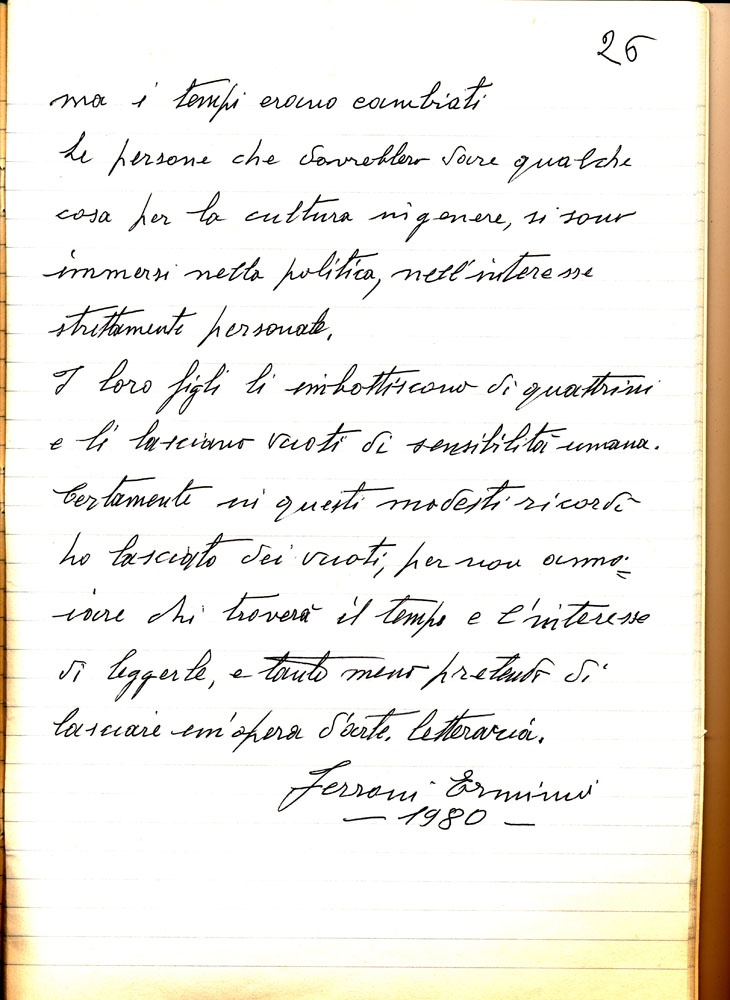 26
ma i tempi erano cambiati
Le persone che dovrebbero dare qualche
cosa per la cultura in genere, si sono
immersi nella politica, nell'interesse
strettamente personale.
I loro figli li imbottiscono di quattrini
e li lasciano vuoti di sensibilità umana.
Certamente in questi modesti ricordi
ho lasciato dei vuoti, per non anno=
iare chi troverà il tempo e l'interesse
di leggerle, e tanto meno pretendo di
lasciare un'opera d'arte. letteraria.
Ferroni Erminio
— 1980 —